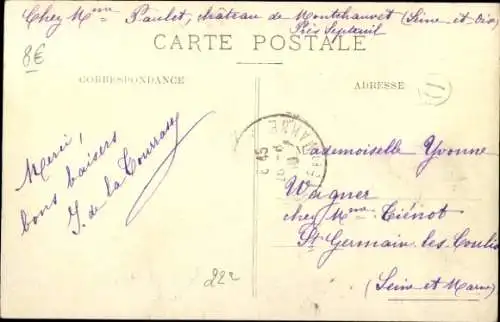 Chez Mme Paulet, château de Montchauvet (Seine et Oise)
Près Septeuil
8€
CARTE POSTALE
CORRESPONDANCE
ADRESSE
D
Merci,
bons baisers
J. de la
Mademoiselle Yvonne
Wagner
chez Mme Tiénot
St Germain les Coulis
(Seine et Marne)
222